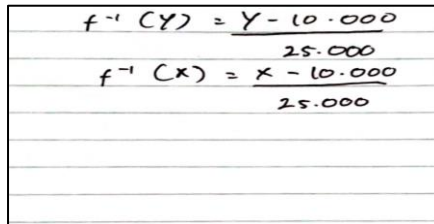 f⁻¹ (Y) = Y - 10.000
25.000
f⁻¹ (x) = x - 10.000
25.000